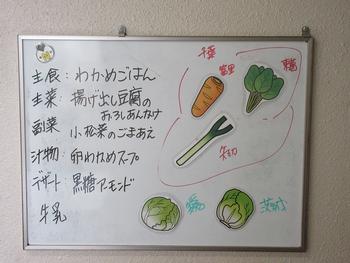 主食：わかめごはん
主菜：揚げ出し豆腐の
おろしあんかけ
副菜 小松菜のごまあえ
汁物：卵わかめスープ
デザート 黒糖アーモンド
牛乳
千葉
富里
茨城